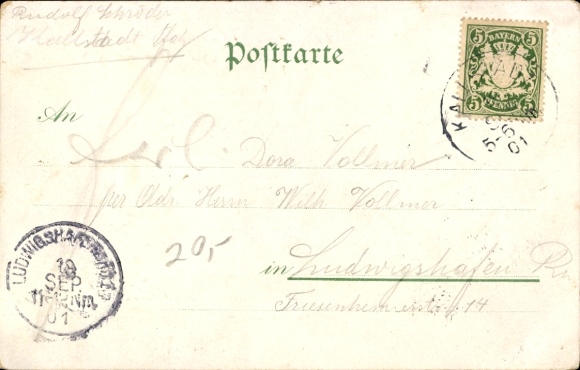 Rudolf Schröder
Postkarte
5 BAYERN 5
5 PFENNIG 5
An
Dora Vollmer
per Adr. Herrn Wilh. Vollmer
20,-
in Ludwigshafen
Friesenheimerstr. 14
LUDWIGSHAFEN
19
SEP
01